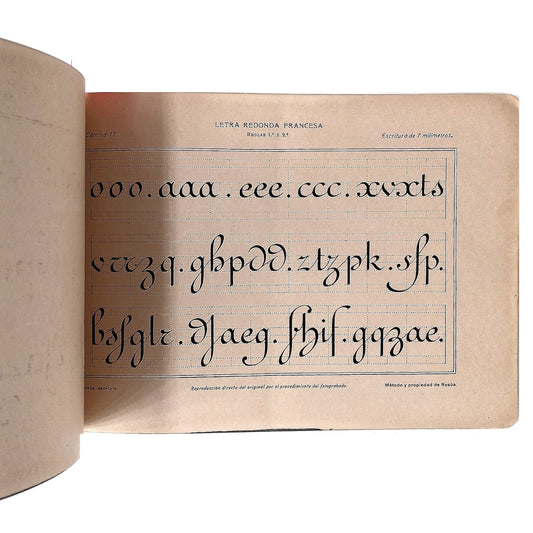 LETRA REDONDA FRANCESA
REGLAS 1.ª Y 2.ª
Lámina 17.
Escritura de 7 milímetros.
ooo.aaa.eee.ccc.xvxts
vrrzq.ghpdd.ztzpk.sſp.
bsſglr.dJaeg.ſhiſ.gqzae.
Reproducción directa del original por el procedimiento del fotograbado.
Método y propiedad de Rosós.